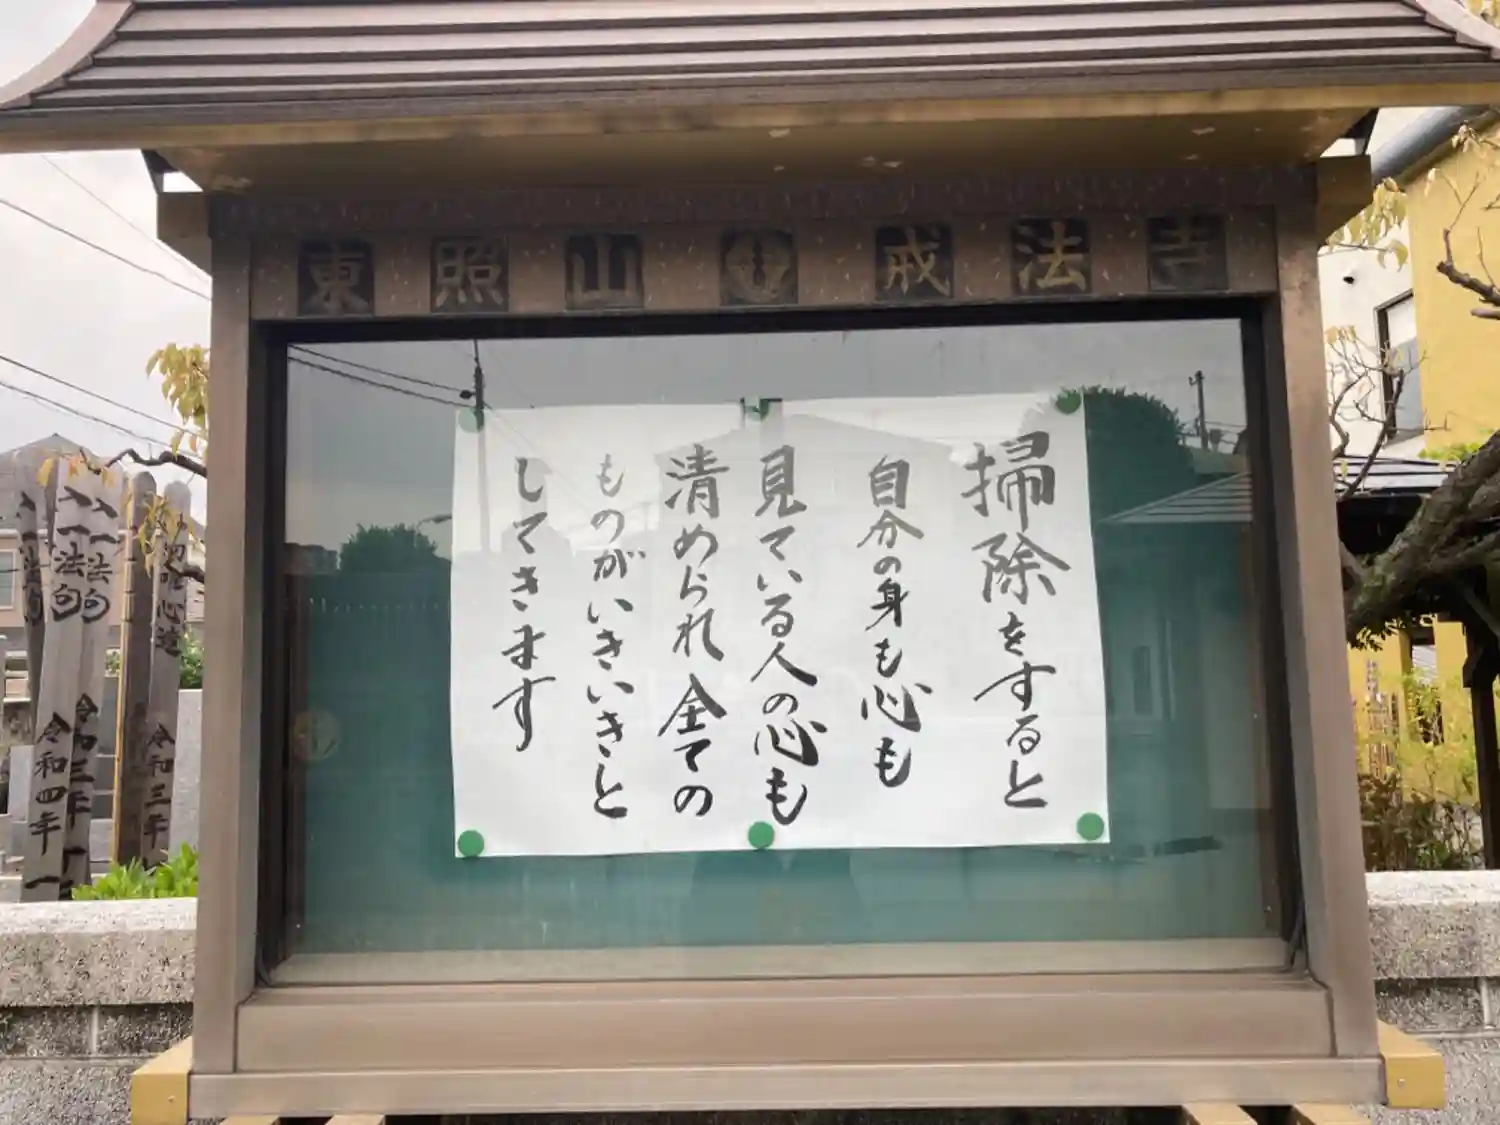 東照山 戒法寺
掃除をすると
自分の身も心も
見ている人の心も
清められ全ての
ものがいきいきと
してきます
入一法句
令和四年
入一法句
令和三年
令和三年